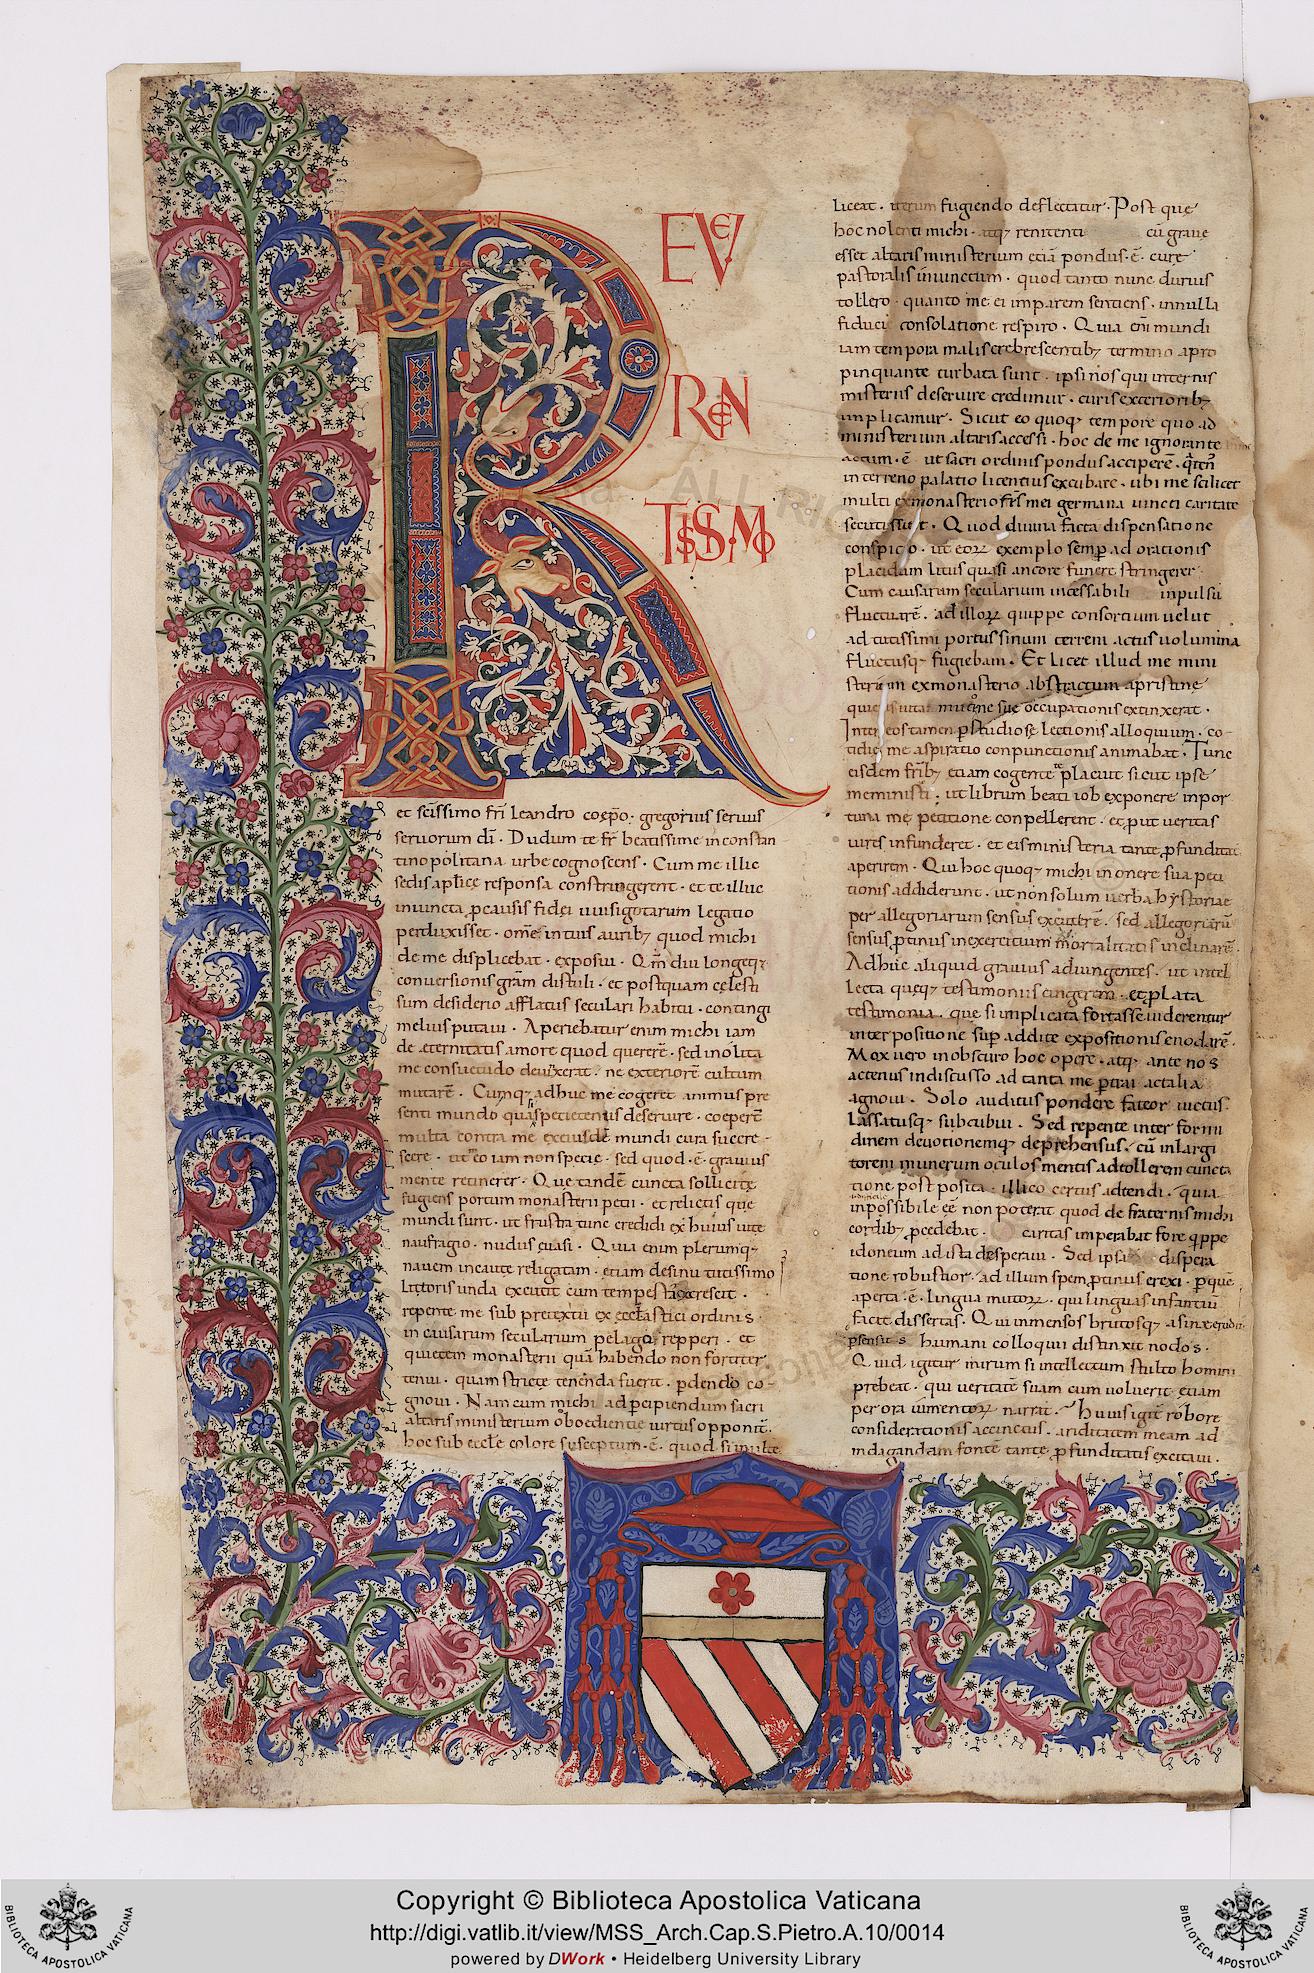 REVE
REN
TISSIMO
et sc̄issimo fr̄i leandro coep̄o · gregorius seruus
seruorum dī · Dudum te fr̄ beatissime in constan
tinopolitana urbe cognoscens · Cum me illic
sedis aplīcę responsa constringerent · et te illuc
iniuncta ꝓ causis fidei uuisigotarum legatio
perduxisset · om̄e in tuis aurib; quod michi
de me displicebat · exposui · Qm̄ diu longeq;
conuersionis grām distuli · et postquam cęlesti
sum desiderio afflatus seculari habitu · contingi
melius putaui · Aperiebatur enim michi iam
de æternitatis amore quod quererē · sed inolita
me consuetudo deuixerat · ne exteriorē cultum
mutarē · Cumq; adhuc me cogeret animus pre
senti mundo quasi specietenus deseruire · coeperē
multa contra me ex eiusdē mundi cura succre-
scere · ut eo iam non specie · sed quod · ē · grauius
mente retinerer · Quę tandē cuncta sollicitę
fugiens portum monasterii petii · et relictis quę
mundi sunt · ut frustra tunc credidi ex huius uitę
naufragio · nudus euasi · Quia enim plerumq;
nauem incaute religatam · etiam de sinu tutissimo
littoris unda excutit cum tempestas excrescit ·
repente me sub pretextu ęcclesiastici ordinis ·
in causarum secularium pelago repperi · et
quietem monasterii quā habendo non fortiter
tenui · quam stricte tenenda fuerit · ꝑdendo co-
gnoui · Nam cum michi ad ꝑcipiendum sacri
altaris ministerium obœdientię uirtus opponit̄ ·
hoc sub eccłe colore susceptum · ē · quod si inulte
liceat · iterum fugiendo deflectatur · Post quę
hoc nolenti michi · atq; renitenti cū graue
esset altaris ministerium etiā pondus · ē · curę
pastoralis iniunctum · quod tanto nunc durius
tollero · quanto me ei imparem sentiens · in nulla
fiducię consolatione respiro · Quia em̄ mundi
iam tempora malis crebrescentib; termino apro
pinquante turbata sunt · ipsi nos qui internis
misteriis deseruire credimur · curis exteriorib;
implicamur · Sicut eo quoq; tempore quo ad
ministerium altaris accessi · hoc de me ignorante
actum · ē · ut sacri ordinis pondus acciperē ·
in terreno palatio licentius excubarē · ubi me scilicet
multi ex monasterio fr̄s mei germana uincti caritate
secuti sunt · Quod diuina factā dispensatione
conspicio · ut eoꝝ exemplo semꝑ ad orationis
placidam litus quasi ancore funere stringerer ·
Cum causarum secularium incessabili inpulsu
fluctuarē · ad illoꝝ quippe consortium uelut
ad tutissimi portus sinum terreni actus uolumina
fluctusq; fugiebam · Et licet illud me mini
sterium ex monasterio abstractum a pristinę
quietis uita mucrone suę occupationis extinxerat ·
Inter eos tamen ꝑ studiosę lectionis alloquium · co-
tidię me aspiratio conpunctionis animabat · Tunc
eisdem fr̄ib; etiam cogentē placuit sicut ipse
meministi · ut librum beati iob exponere inpor
tuna me petitione conpellerent · et ꝓut ueritas
uires infunderet · et eis ministeria tantę ꝓfunditatis
aperirem · Qui hoc quoq; michi in onere suą peti
tionis addiderunt · ut non solum uerba hystoriae
per allegoriarum sensus excuterē · sed allegoriarū
sensus ꝓtinus in exercitium moralitatis inclinarē ·
Adhuc aliquid grauius adiungentes · ut intel
lecta quęq; testimoniis cingerem · et plata
testimonia · quę si implicita fortasse uiderentur
inter positione suꝑ additę expositionis enodarē ·
Mox uero in obscuro hoc opere · atq; ante nos
actenus indiscusso ad tanta me ꝑtrai ac talia
agnoui · Solo auditus pondere fateor uictus
lassatusq; subcubui · Sed repente inter formi
dinem deuotionemq; deprehensus · cū in largi
torem munerum oculos mentis adtollerem cuncta
tione post posita · illico certus adtendi · quia
inpossibile eē non poterat quod de fraternis michi
cordib; ꝓcedebat · caritas imperabat fore q̄ppe
idoneum ad ista desperaui · Sed ipsa dispera
tione robustior · ad illum spem ꝓtinus erexi · ꝑ quē
aperta · ē · lingua mutoꝝ · qui linguas infantiū
facit dissertas · Qui inmensos brutosq; asinę ruditus
ꝑ sensatos humani colloquii distinxit nodos ·
Quid igitur mirum si intellectum stulto homini
prebeat · qui ueritatē suam cum uoluerit etiam
per ora iumentoꝝ narrat · Huius igit̄ robore
considerationis accinctus · ariditatem meam ad
indagandam fontē tantę ꝓfunditatis excitaui ·
Copyright © Biblioteca Apostolica Vaticana
http://digi.vatlib.it/view/MSS_Arch.Cap.S.Pietro.A.10/0014
powered by DWork • Heidelberg University Library
BIBLIOTECA APOSTOLICA VATICANA
BIBLIOTECA APOSTOLICA VATICANA